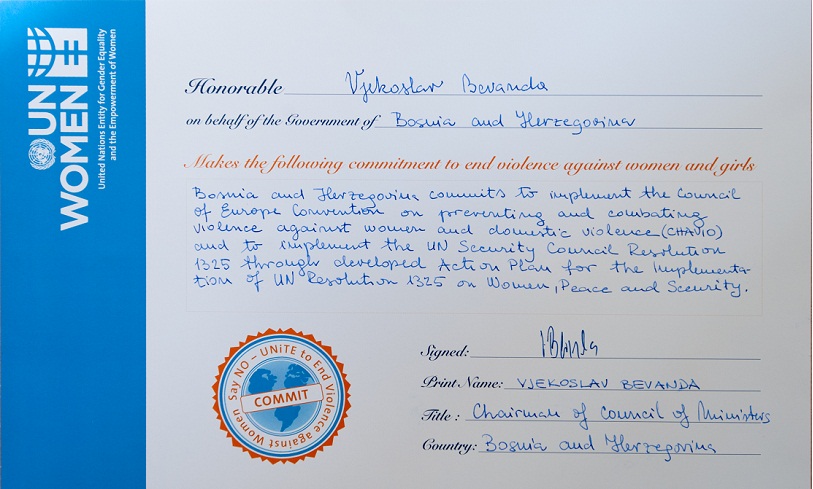 UN
WOMEN
United Nations Entity for Gender Equality
and the Empowerment of Women
Honorable Vjekoslav Bevanda
on behalf of the Government of Bosnia and Herzegovina
Makes the following commitment to end violence against women and girls
Bosnia and Herzegovina commits to implement the Council
of Europe Convention on preventing and combating
violence against women and domestic violence (CHAVIO)
and to implement the UN Security Council Resolution
1325 through developed Action Plan for the Implementa-
tion of UN Resolution 1325 on Women, Peace and Security.
Say NO – UNiTE to End Violence against Women
COMMIT
Signed:
Print Name: VJEKOSLAV BEVANDA
Title : Chairman of Council of Ministers
Country: Bosnia and Herzegovina